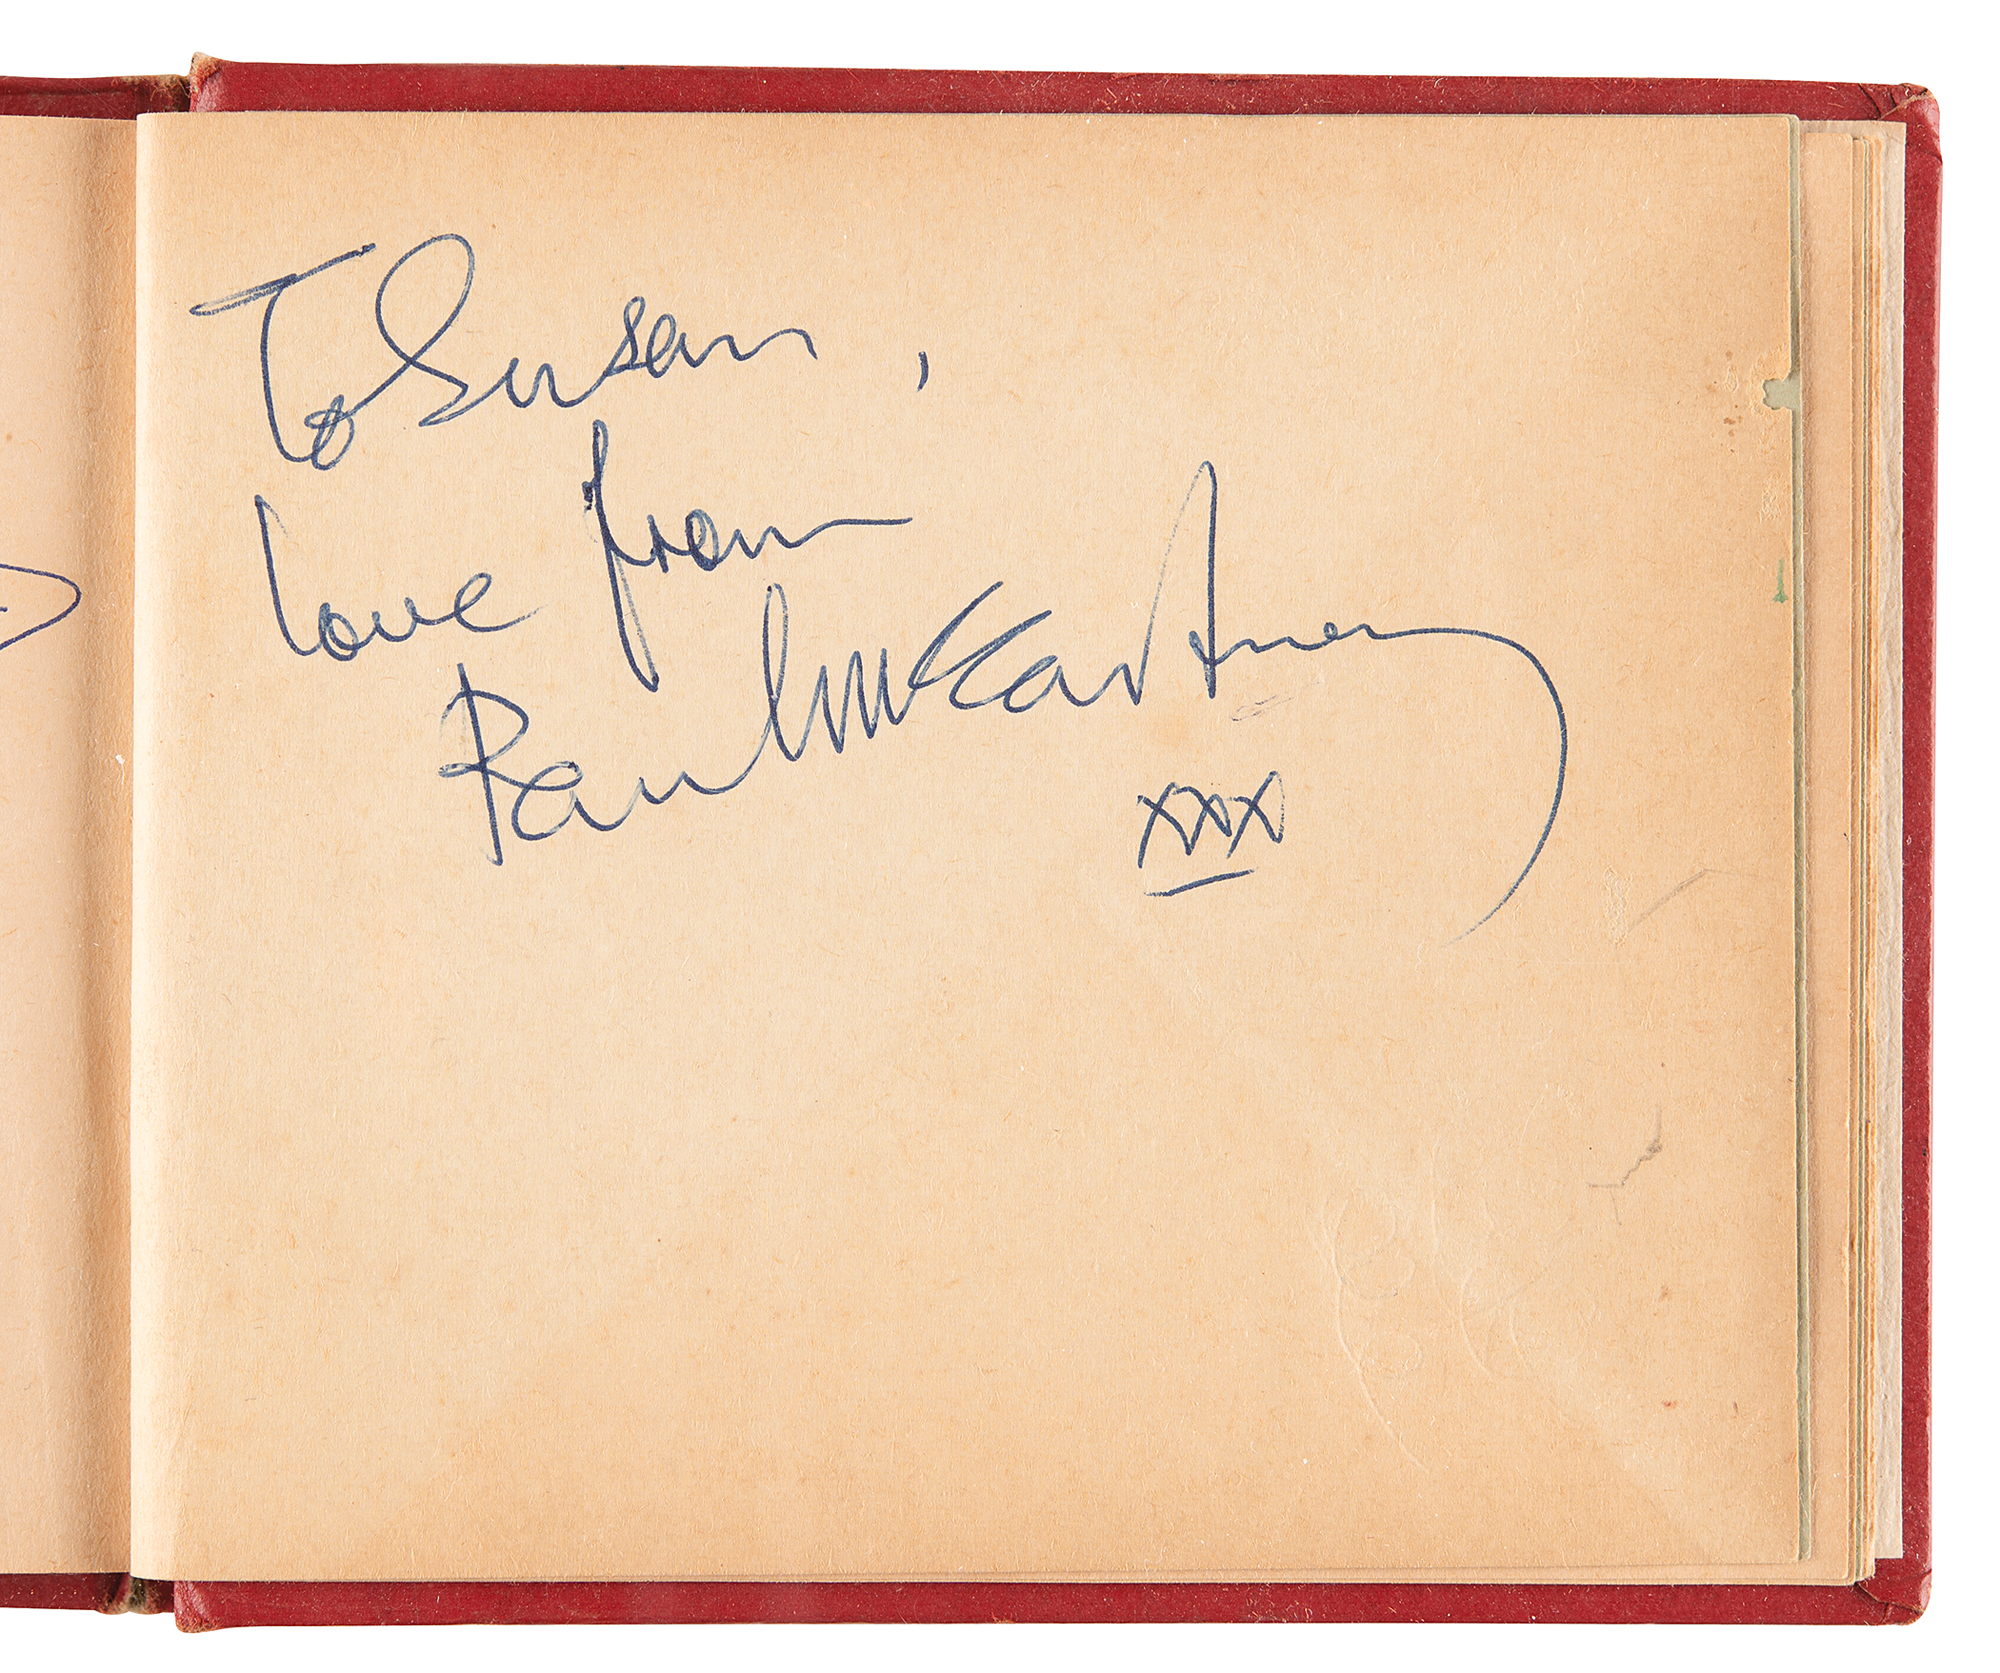 To Susan,
love from
Paul McCartney
xxx